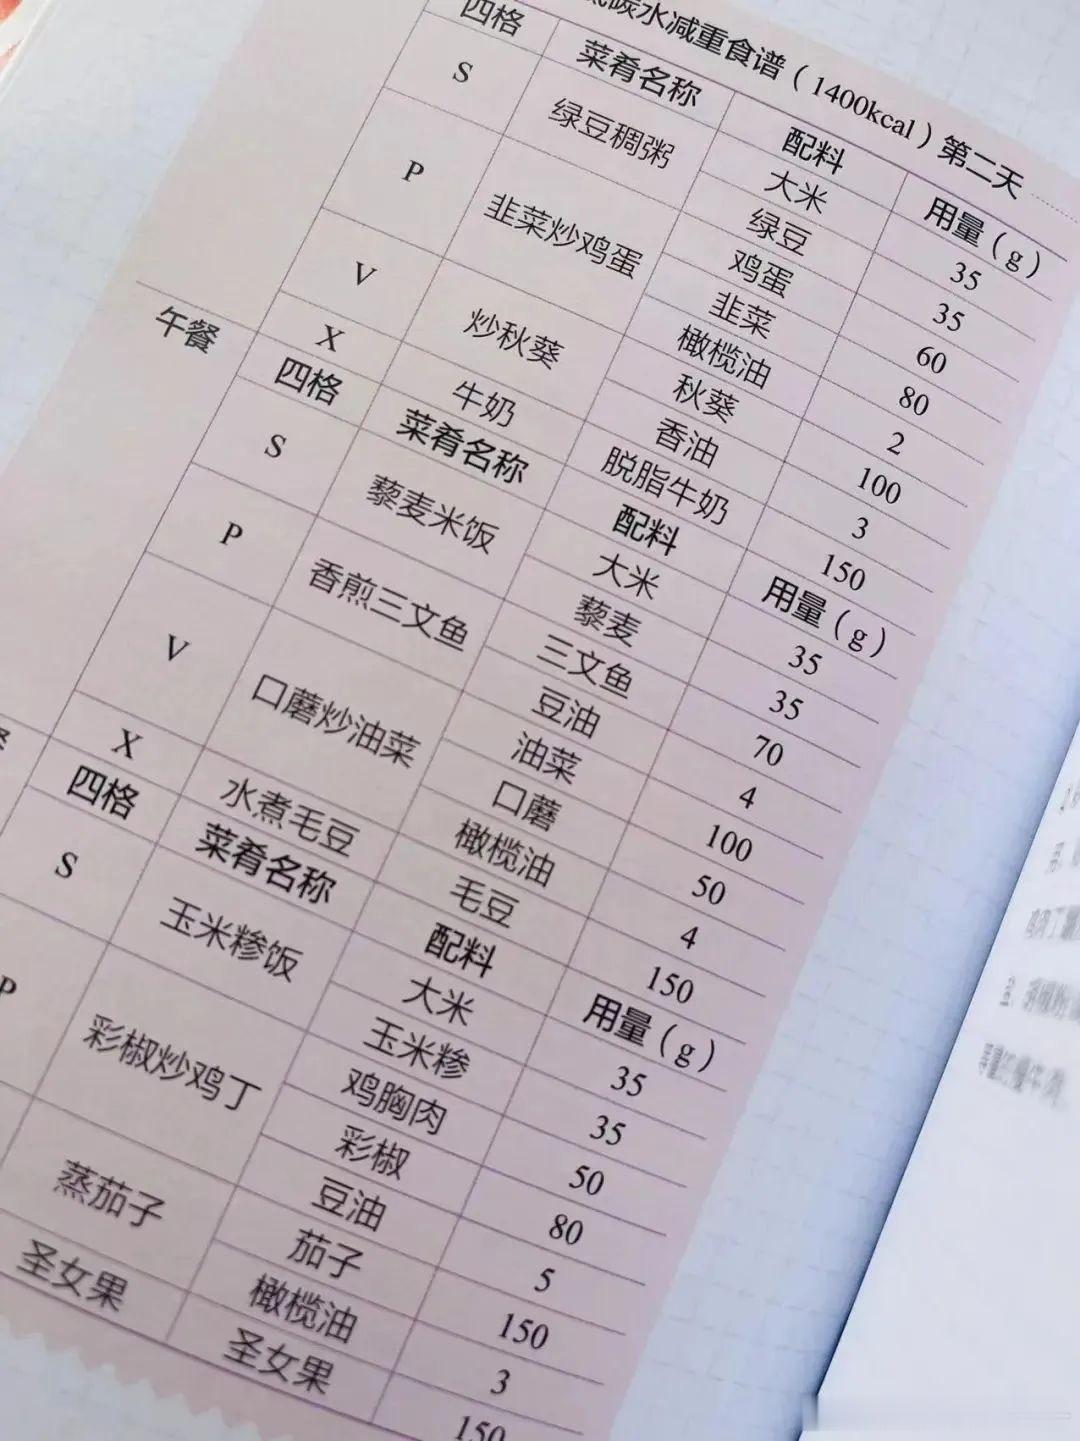 碳水减重食谱（1400kcal）第二天
四格 菜肴名称 配料 用量（g）
S 绿豆稠粥 大米 35
绿豆 35
P 韭菜炒鸡蛋 鸡蛋 60
韭菜 80
橄榄油 2
V 炒秋葵 秋葵 100
香油 3
X 牛奶 脱脂牛奶 150
午餐 四格 菜肴名称 配料 用量（g）
S 藜麦米饭 大米 35
藜麦 35
P 香煎三文鱼 三文鱼 70
豆油 4
V 口蘑炒油菜 油菜 100
口蘑 50
橄榄油 4
X 水煮毛豆 毛豆 150
四格 菜肴名称 配料 用量（g）
S 玉米糁饭 大米 35
玉米糁 35
P 彩椒炒鸡丁 鸡胸肉 50
彩椒 80
豆油 5
蒸茄子 茄子 150
橄榄油 3
圣女果 圣女果 150